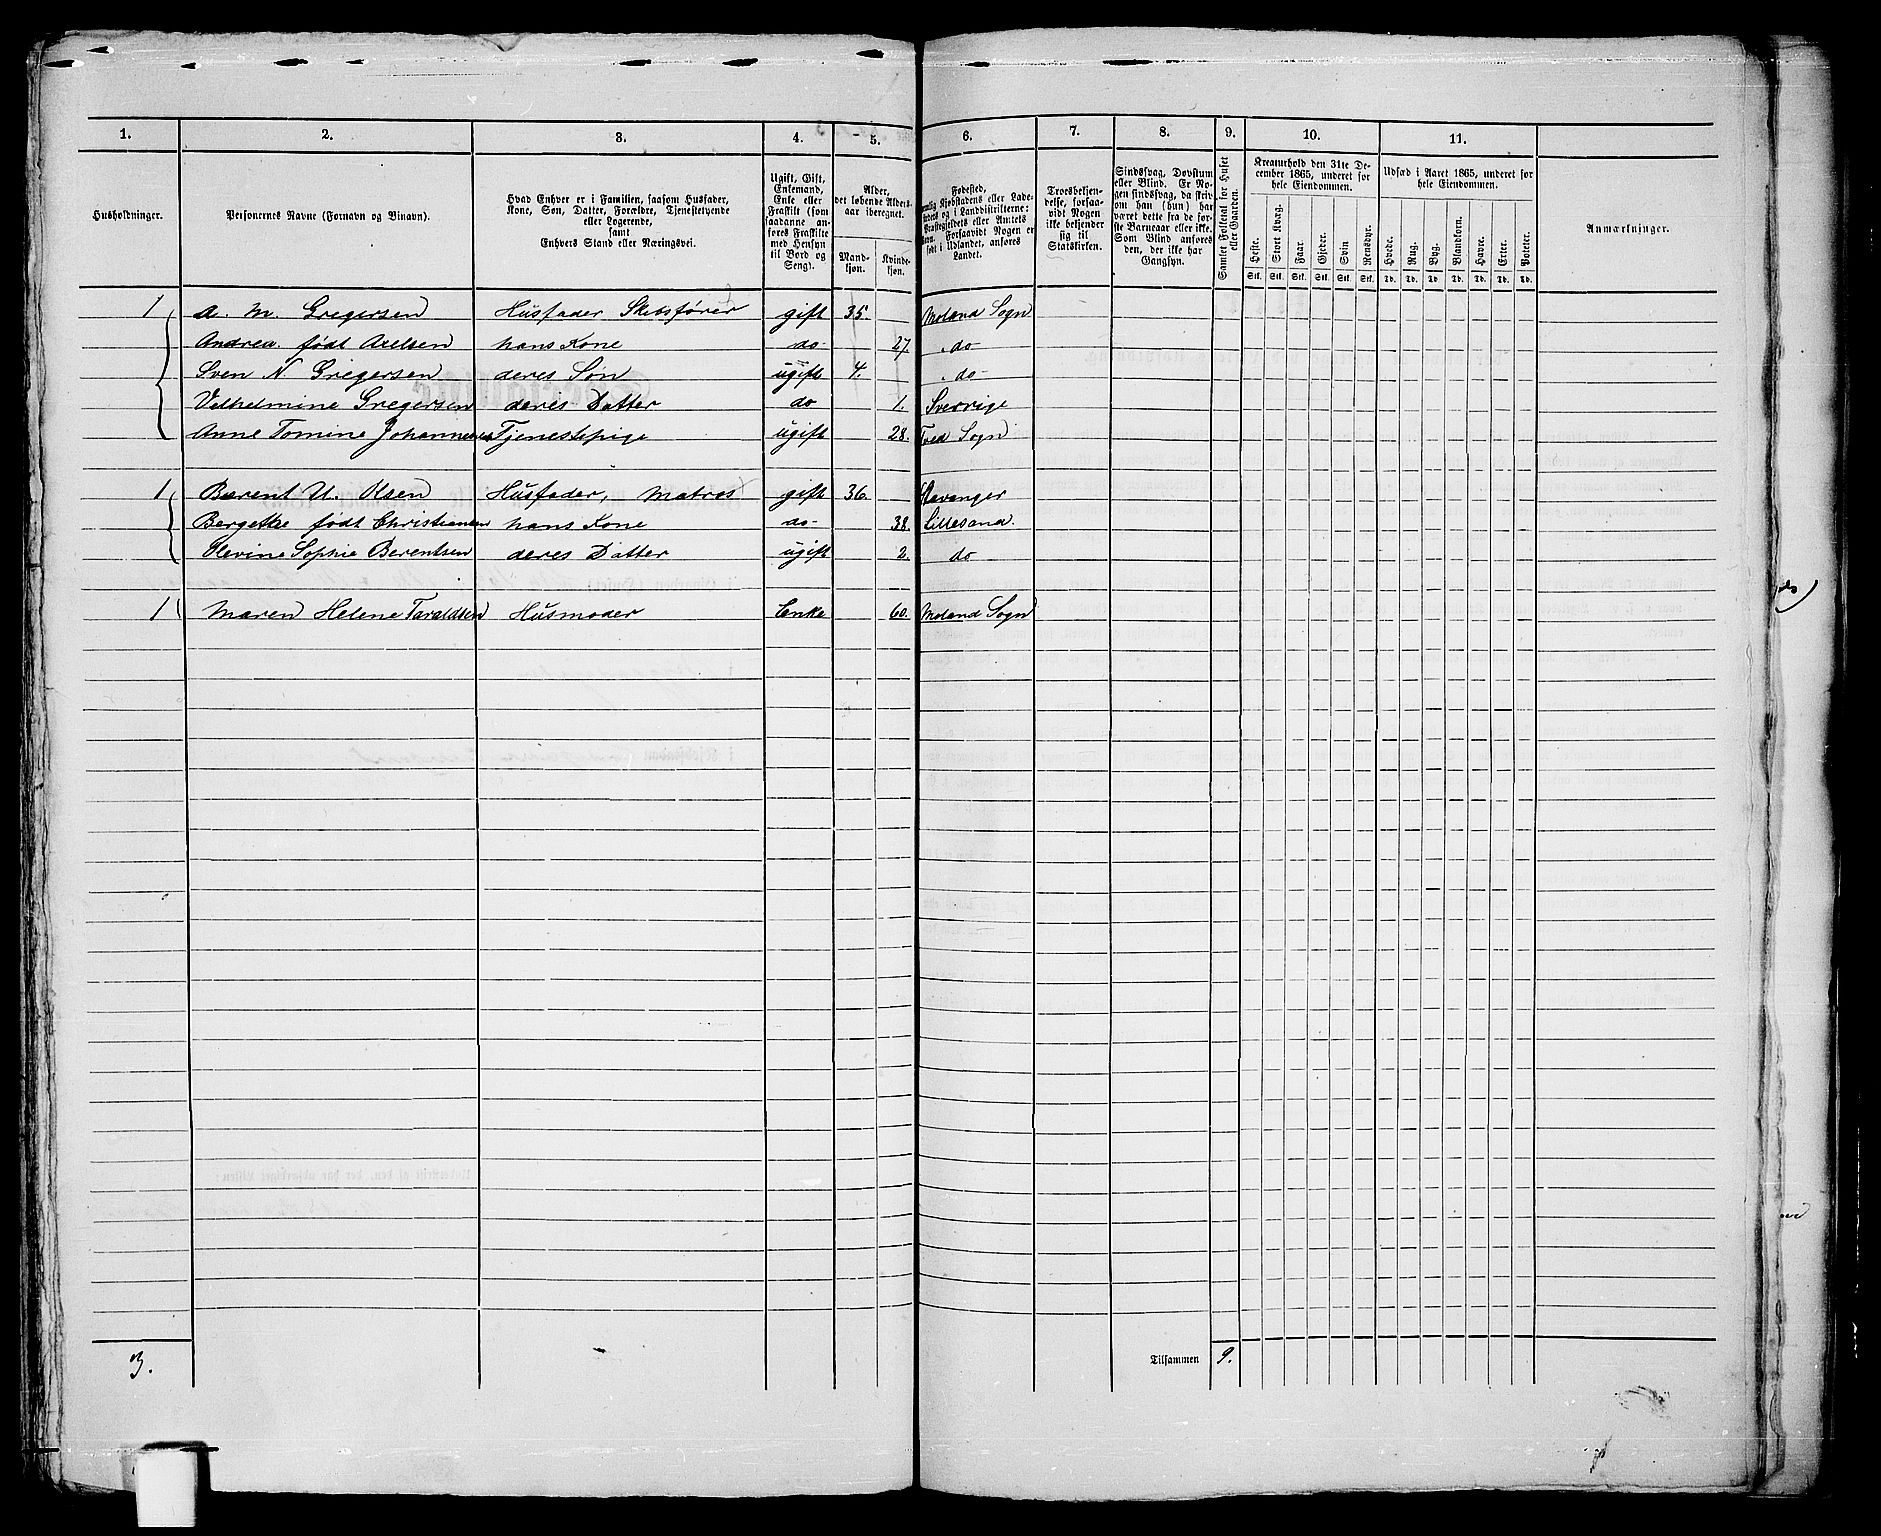 1. 2. 3. 4. 5. 6. 7. 8. 9. 10. 11.
Husholdninger.
Personernes Navne (Fornavn og Binavn).
Hvad Enhver er i Familien, saasom Husfader,
Kone, Søn, Datter, Forældre, Tjenestetyende
eller Logerende,
samt
Enhvers Stand eller Næringsvei.
Ugift, Gift,
Enkemand,
Enke eller
Fraskilt (som
saadanne an-
føres Fraskilte
med Hensyn
til Bord og
Seng).
Alder,
det løbende Alders-
aar iberegnet.
Mand-
kjøn.
Kvinde-
kjøn.
Fødested,
og i Landdistrikterne:
Præstegjeldets eller Amtets
Navn. Forsaavidt Nogen er
født i Udlandet, anføres
Landet.
Troesbekjen-
delse, forsaa-
vidt Nogen
ikke bekjender
sig til
Statskirken.
Sindssvag, Døvstum
eller Blind. Er No-
gen sindssvag, da skriv
om han (hun) har
været dette fra de før-
ste Barneaar eller ikke.
Som Blind anføres
den, der ikke har
Gangsyn.
Samlet Folketal for Huset
eller Gaarden.
Kreaturhold den 31te De-
cember 1865, underet for
hele Eiendommen.
Heste. Stort Kvæg. Faar. Gjeder. Svin Rensdyr.
Stk. Stk. Stk. Stk. Stk. Stk.
Udsæd i Aaret 1865, underet for
hele Eiendommen.
Hvede. Rug. Byg. Blandkorn. Havre. Erter. Poteter.
Td. Td. Td. Td. Td. Td. Td.
Anmærkninger.
1 A. M. Gregersen Husfader Skibsfører gift 35. Moland Sogn
Andrea født Axelsen hans Kone do 27 do
Sven N. Gregersen deres Søn ugift 4. do
Velhelmine Gregersen deres Datter do 1. Sverrige
Anne Tomine Johannesen Tjenestepige ugift 28. Tved Sogn
1 Berent U. Olsen Husfader, Matros gift 36. Stavanger
Bergethe født Christiansen hans Kone do 38. Lillesand.
Olevine Sophie Berentsen deres Datter ugift 2. do
1 Maren Helene Taraldsen Husmoder Enke 60. Moland Sogn
3. Tilsammen 9.